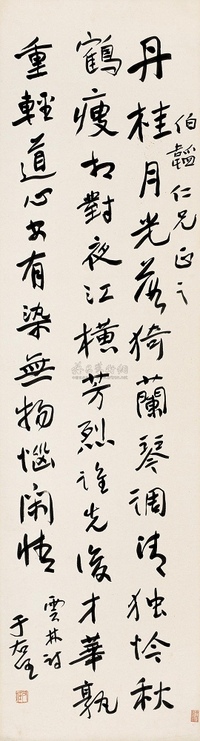 伯韞仁兄正之
丹桂月光落猗蘭琴調清独怜秋
鶴瘦相對夜江橫芳烈誰先後才華孰
重輕道心安有染無物惱閑情
雲林詩
于右任